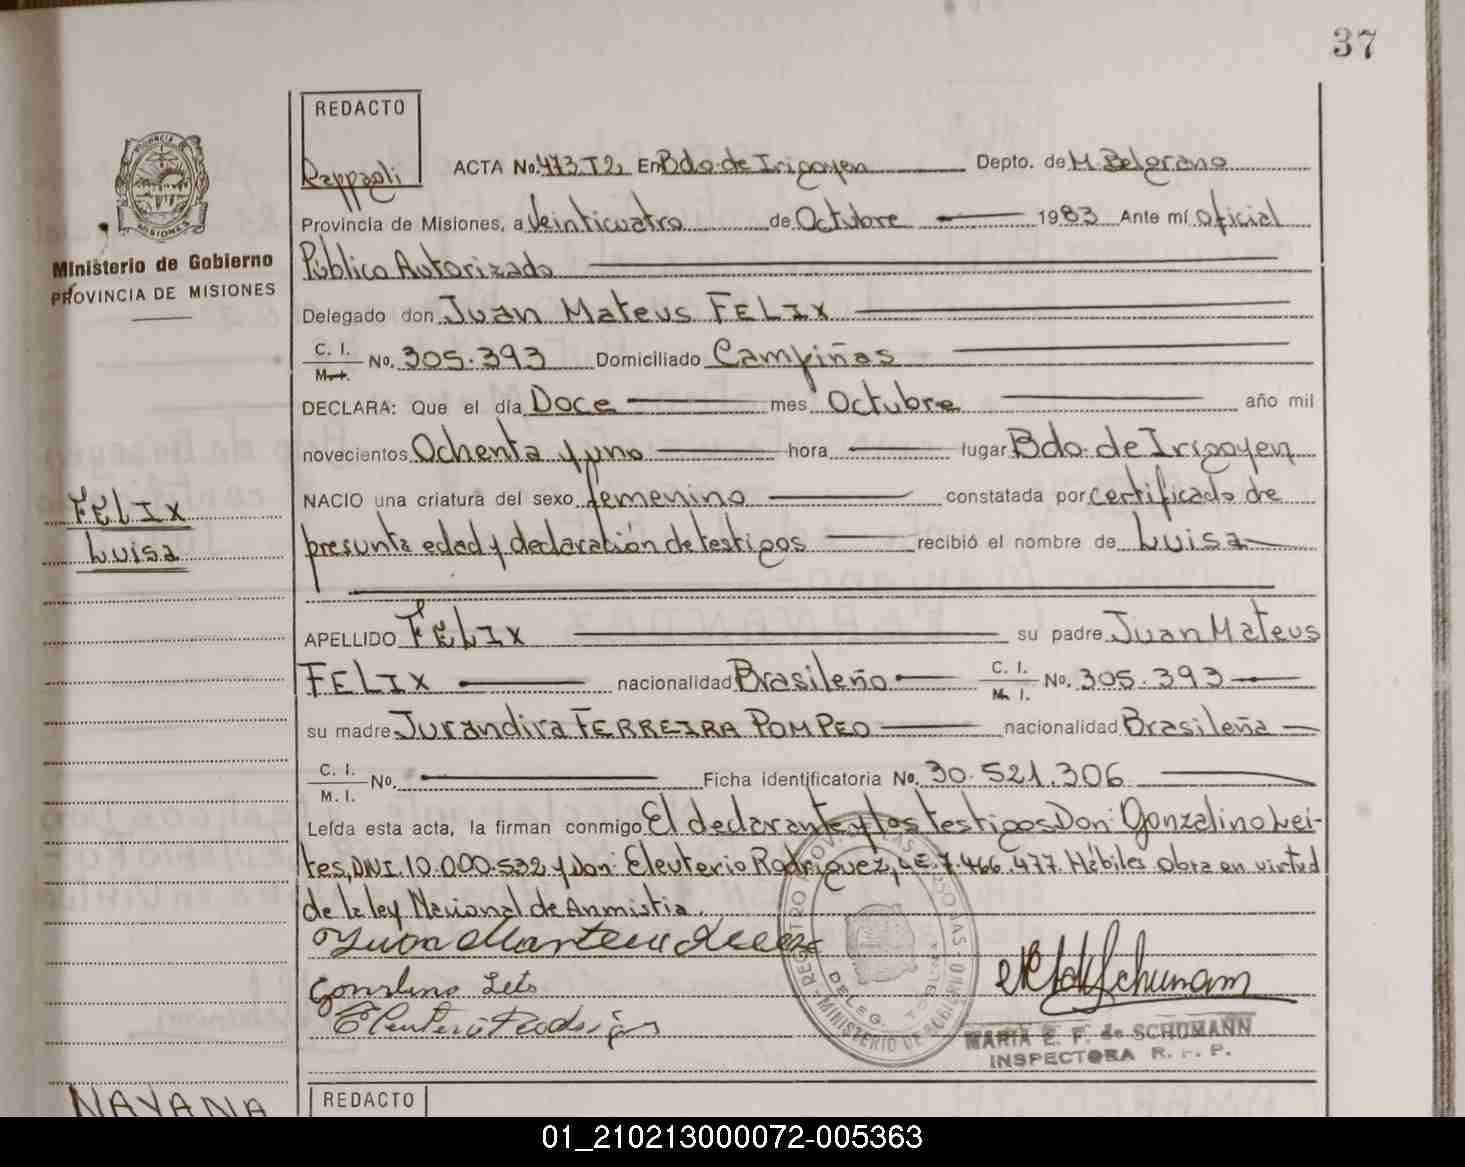 37
REDACTO
Rappagli
ACTA No. 473 T2, En Bdo. de Irigoyen Depto. de M. Belgrano
Provincia de Misiones, a Veinticuatro de Octubre 1983 Ante mí, oficial
Público Autorizado
Delegado don Juan Mateus FELIX
C. I. M. I. No. 305.393 Domiciliado Campiñas
DECLARA: Que el día Doce mes Octubre año mil
novecientos Ochenta y uno hora lugar Bdo. de Irigoyen
NACIO una criatura del sexo femenino constatada por certificado de
presunta edad y declaración de testigos recibió el nombre de Luisa
APELLIDO FELIX su padre Juan Mateus
FELIX nacionalidad Brasileño C. I. M. I. No. 305.393
su madre Jurandira FERREIRA POMPEO nacionalidad Brasileña
C. I. M. I. No. Ficha identificatoria No. 30.521.306
Leída esta acta, la firman conmigo El declarante y los testigos Don: Gonzalino Lei-
tes, DNI. 10.000.532 y Don: Eleuterio Rodriguez, L.E. 7.466.477. Hábiles. Obra en virtud
de la ley Nacional de Anmistia.
Eleuterio Rodrigez
MARIA E. F. de SCHUMANN
INSPECTORA R. P. P.
PROVINCIA
MISIONES
Ministerio de Gobierno
PROVINCIA DE MISIONES
FELIX
Luisa
NAYANA
REDACTO
01_210213000072-005363